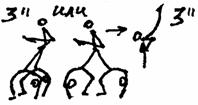 3" или 3"